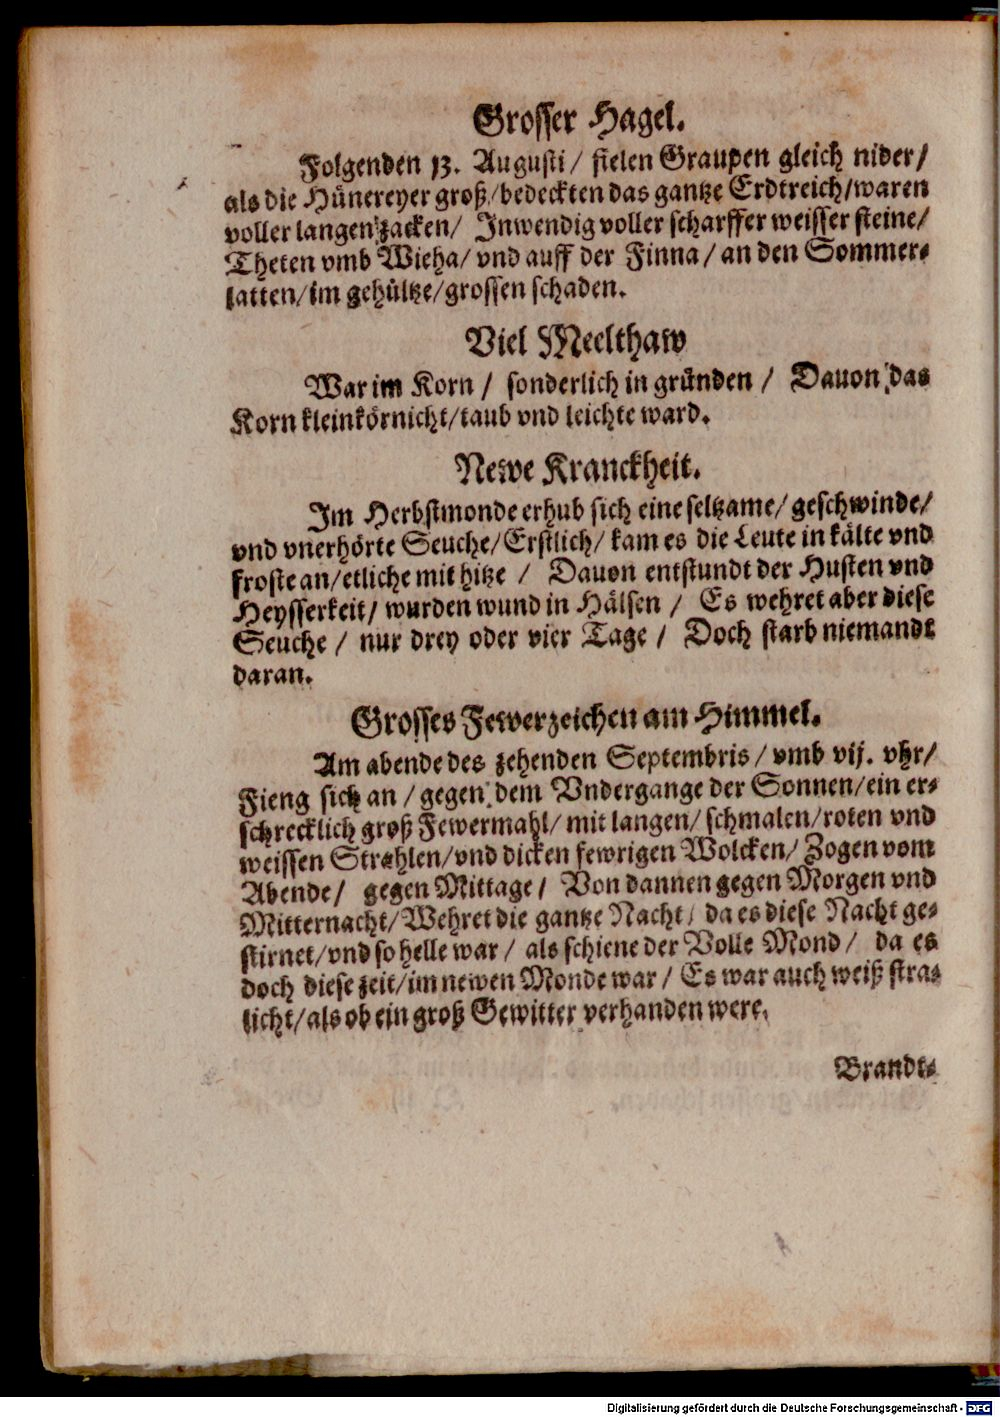 Grosser Hagel.
Folgenden 13. Augusti / fielen Graupen gleich nider /
als die Hünereyer groß / bedeckten das gantze Erdtreich / waren
voller langen zacken / Inwendig voller scharffer weisser steine /
Theten vmb Wieha / vnd auff der Finna / an den Sommer⸗
latten / im gehültze / grossen schaden.
Viel Meelthaw
War im Korn / sonderlich in gründen / Dauon das
Korn kleinkörnicht / taub vnd leichte ward.
Newe Kranckheit.
Im Herbstmonde erhub sich eine seltzame / geschwinde /
vnd vnerhörte Seuche / Erstlich / kam es die Leute in kälte vnd
froste an / etliche mit hitze / Dauon entstundt der Husten vnd
Heysserkeit / wurden wund in Hälsen / Es wehret aber diese
Seuche / nur drey oder vier Tage / Doch starb niemandt
daran.
Grosses Fewerzeichen am Himmel.
Am abende des zehenden Septembris / vmb vij. vhr /
Fieng sich an / gegen dem Vndergange der Sonnen / ein er⸗
schrecklich groß Fewermahl / mit langen / schmalen / roten vnd
weissen Strahlen / vnd dicken fewrigen Wolcken / Zogen vom
Abende / gegen Mittage / Von dannen gegen Morgen vnd
Mitternacht / Wehret die gantze Nacht / da es diese Nacht ge⸗
stirnet / vnd so helle war / als schiene der Volle Mond / da es
doch diese zeit / im newen Monde war / Es war auch weiß stra⸗
licht / als ob ein groß Gewitter verhanden were.
Brandt⸗
Digitalisierung gefördert durch die Deutsche Forschungsgemeinschaft - DFG